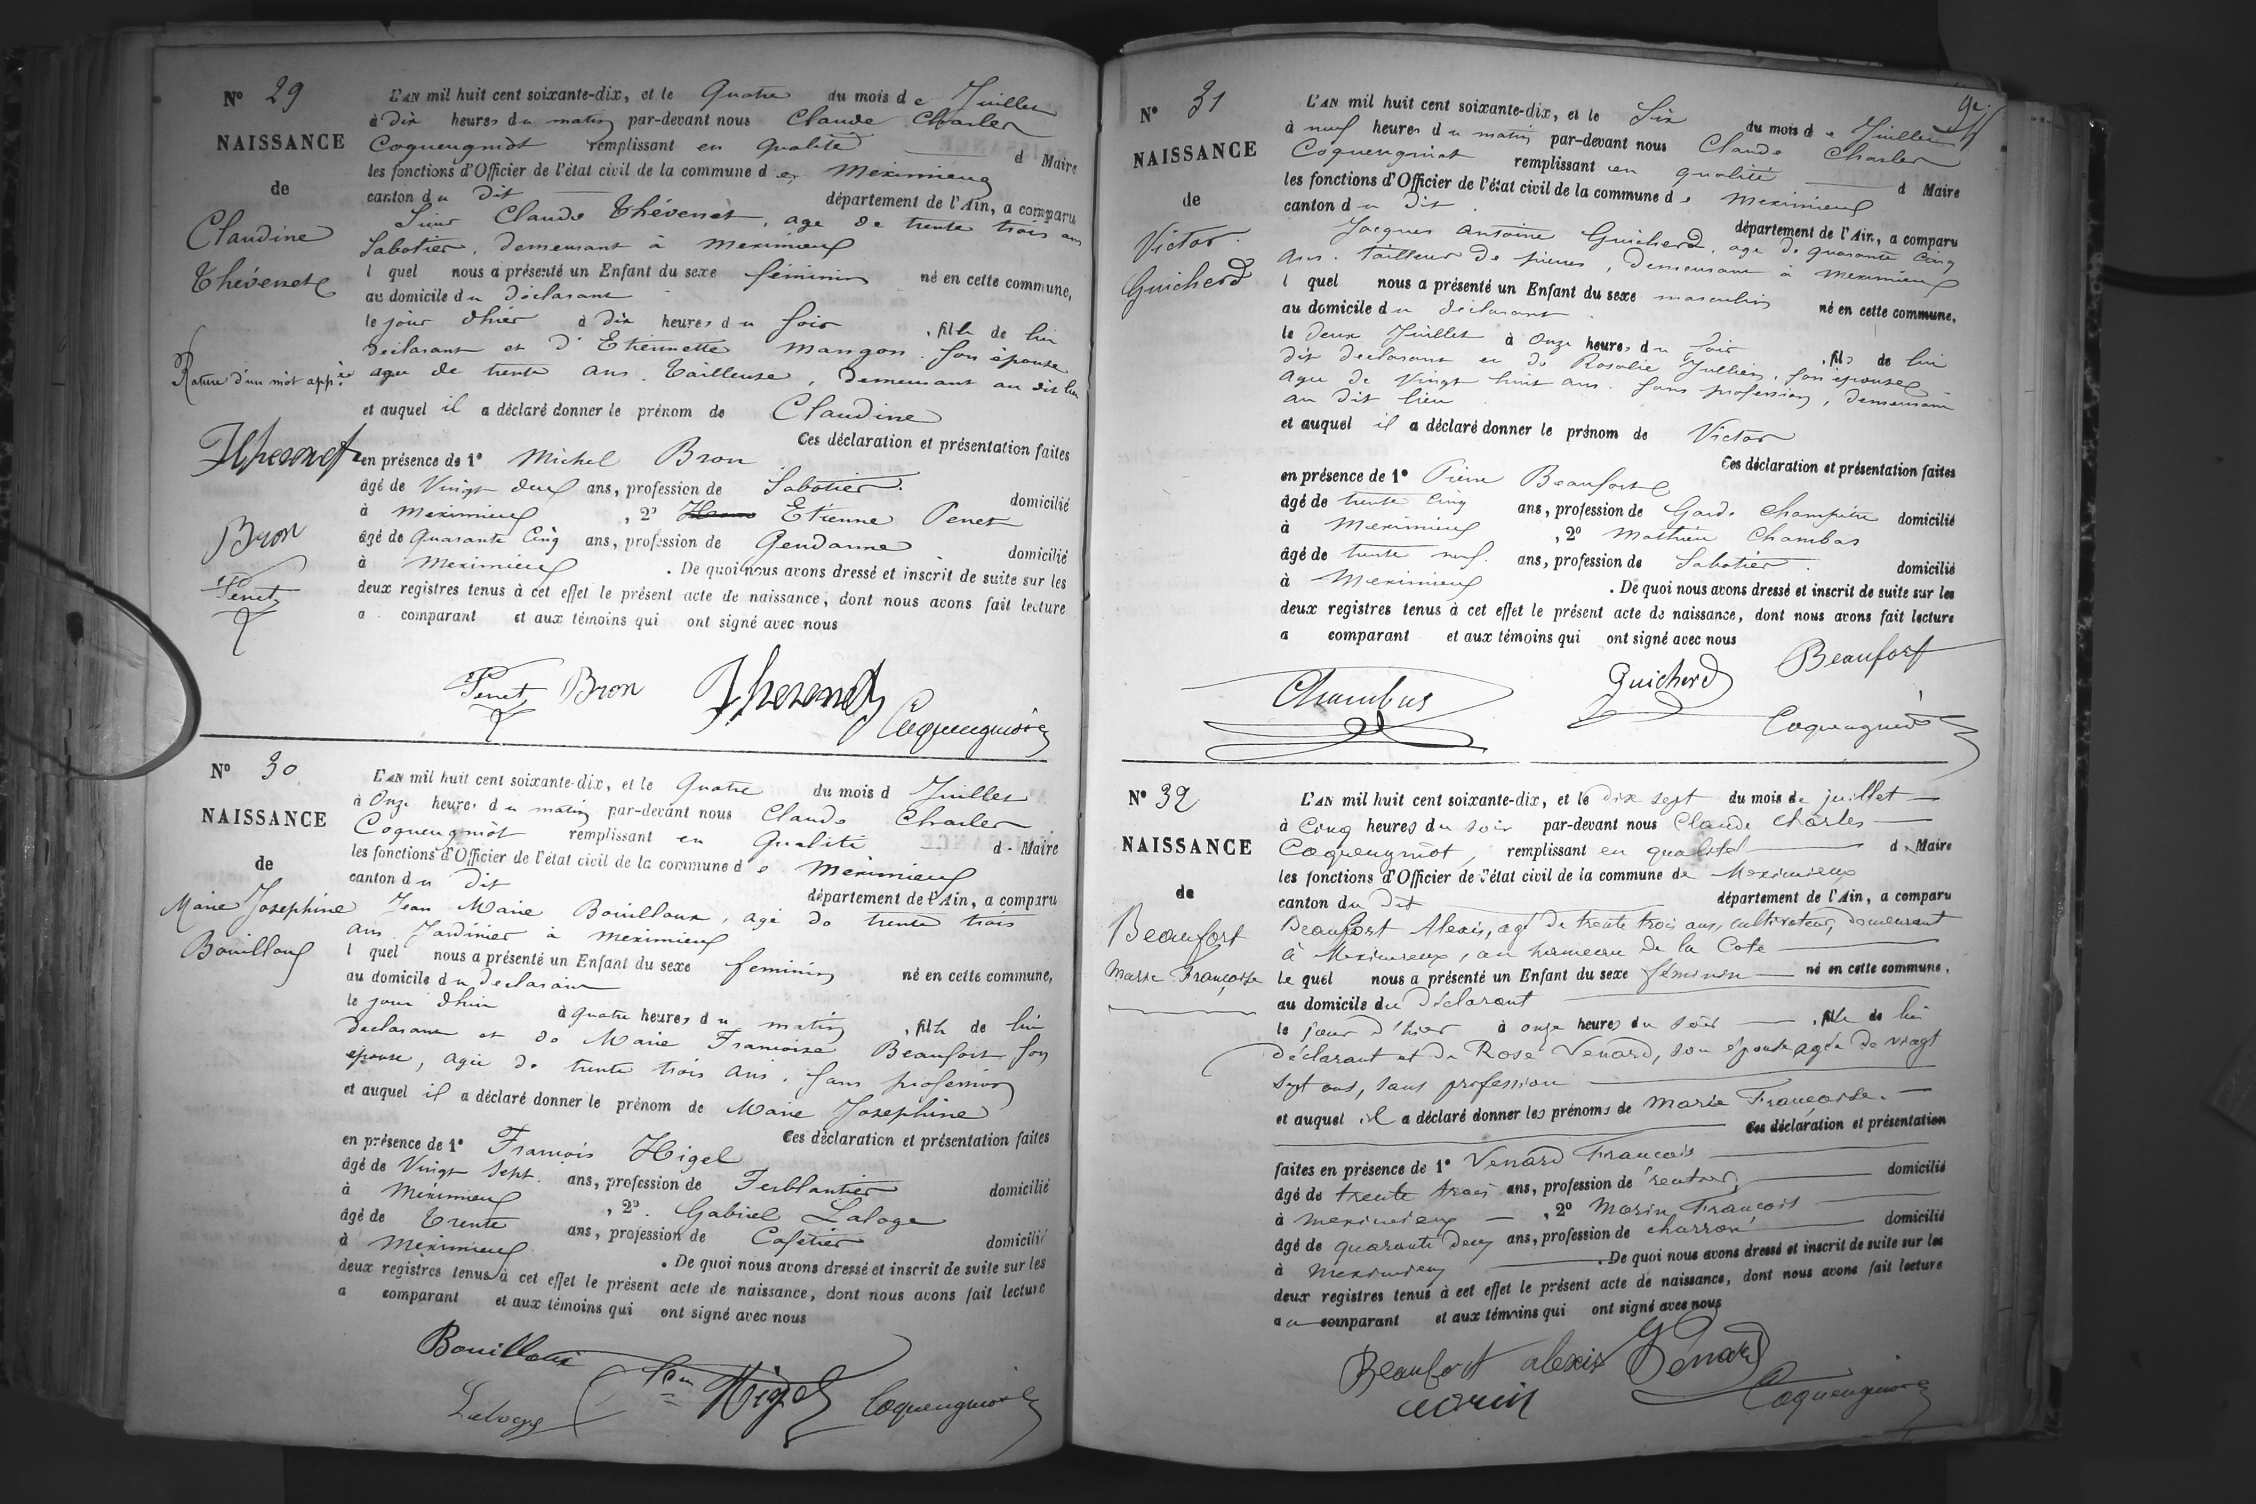 N° 29
NAISSANCE
de
Claudine
Thévenet
Rature d'un mot app.ée
Thevenet
Bron
Penet
L'AN mil huit cent soixante-dix, et le Quatre du mois de Juillet
à Dix heures du matin par-devant nous Claude Charles
Coqueugniot remplissant en qualité d Maire
les fonctions d'Officier de l'état civil de la commune de Meximieux
canton du Dit département de l'Ain, a comparu
Sieur Claude Thévenet, age de trente trois ans
Sabotier, demeurant à Meximieux
l quel nous a présenté un Enfant du sexe féminin né en cette commune,
au domicile du déclarant
le jour d'hier à dix heures du soir, fille de lui
déclarant et d'Etiennette Mangon, son épouse
agée de trente ans. Tailleuse, demeurant au dit lieu
et auquel il a déclaré donner le prénom de Claudine
Ces déclaration et présentation faites
en présence de 1° Michel Bron
âgé de Vingt deux ans, profession de Sabotier. domicilié
à Meximieux, 2° Etienne Penet
âgé de Quarante Cinq ans, profession de Gendarme domicilié
à Meximieux. De quoi nous avons dressé et inscrit de suite sur les
deux registres tenus à cet effet le présent acte de naissance, dont nous avons fait lecture
a comparant et aux témoins qui ont signé avec nous
Penet Bron Thevenet
Coqueugniot
N° 30
NAISSANCE
de
Marie Josephine
Bouilloux
L'AN mil huit cent soixante-dix, et le Quatre du mois d Juillet
à Onze heures du matin par-devant nous Claude Charles
Coqueugniot remplissant en Qualité d Maire
les fonctions d'Officier de l'état civil de la commune de Meximieux
canton du Dit département de l'Ain, a comparu
Jean Marie Bouilloux, agé de trente trois
ans Jardinier à Meximieux
l quel nous a présenté un Enfant du sexe feminin né en cette commune,
au domicile du declarant
le jour d'hier à quatre heures du matin, fille de lui
declarant et de Marie Francoise Beaufort son
épouse, agée de trente trois ans, sans profession
et auquel il a déclaré donner le prénom de Marie Josephine
Ces déclaration et présentation faites
en présence de 1° Francois Higel
âgé de Vingt sept. ans, profession de Ferblantier domicilié
à Meximieux, 2°. Gabriel Laloge
âgé de Trente ans, profession de Cafetier domicilié
à Meximieux. De quoi nous avons dressé et inscrit de suite sur les
deux registres tenus à cet effet le présent acte de naissance, dont nous avons fait lecture
a comparant et aux témoins qui ont signé avec nous
Bouilloux
Laloge Higel Coqueugniot
N° 31
NAISSANCE
de
Victor
Guicherd
L'AN mil huit cent soixante-dix, et le Six du mois de Juillet
à neuf heures du matin par-devant nous Claude Charles
Coqueugniot remplissant en qualité d Maire
les fonctions d'Officier de l'état civil de la commune de Meximieux
canton du Dit département de l'Ain, a comparu
Jacques Antoine Guicherd, age de quarante cinq
ans. tailleur de pierres, demeurant à Meximieux
l quel nous a présenté un Enfant du sexe masculin né en cette commune,
au domicile du déclarant
le deux Juillet à Onze heures du soir, fils de lui
dit declarant et de Rosalie Jullien, son épouse
agée de Vingt huit ans. sans profession, demeurant
au dit lieu
et auquel il a déclaré donner le prénom de Victor
Ces déclaration et présentation faites
en présence de 1° Pierre Beaufort
âgé de trente cinq ans, profession de Garde Champêtre domicilié
à Meximieux, 2° Mathieu Chambas
âgé de trente neuf. ans, profession de Sabotier. domicilié
à Meximieux. De quoi nous avons dressé et inscrit de suite sur les
deux registres tenus à cet effet le présent acte de naissance, dont nous avons fait lecture
a comparant et aux témoins qui ont signé avec nous
Beaufort
Chambas Guicherd
Coqueugniot
N° 32
NAISSANCE
de
Beaufort
Marie Françoise
L'AN mil huit cent soixante-dix, et le dix sept du mois de juillet
à Cinq heures du soir par-devant nous Claude Charles
Coqueugniot, remplissant en qualité d Maire
les fonctions d'Officier de l'état civil de la commune de Meximieux
canton du Dit département de l'Ain, a comparu
Beaufort Alexis, agé de trente trois ans, cultivateur, demeurant
à Meximieux, au hameau de la Cote
le quel nous a présenté un Enfant du sexe féminin né en cette commune,
au domicile du déclarant
le jour d'hier à onze heures du soir, fille de lui
déclarant et de Rose Venard, son épouse agée de vingt
sept ans, sans profession
et auquel il a déclaré donner les prénoms de Marie Françoise.
Ces déclaration et présentation
faites en présence de 1° Venard Francois
âgé de trente trois ans, profession de rentier, domicilié
à Meximieux, 2° Morin François
âgé de quarante deux ans, profession de charron domicilié
à Meximieux. De quoi nous avons dressé et inscrit de suite sur les
deux registres tenus à cet effet le présent acte de naissance, dont nous avons fait lecture
au comparant et aux témoins qui ont signé avec nous
Beaufort alexis Venard
morin Coqueugniot